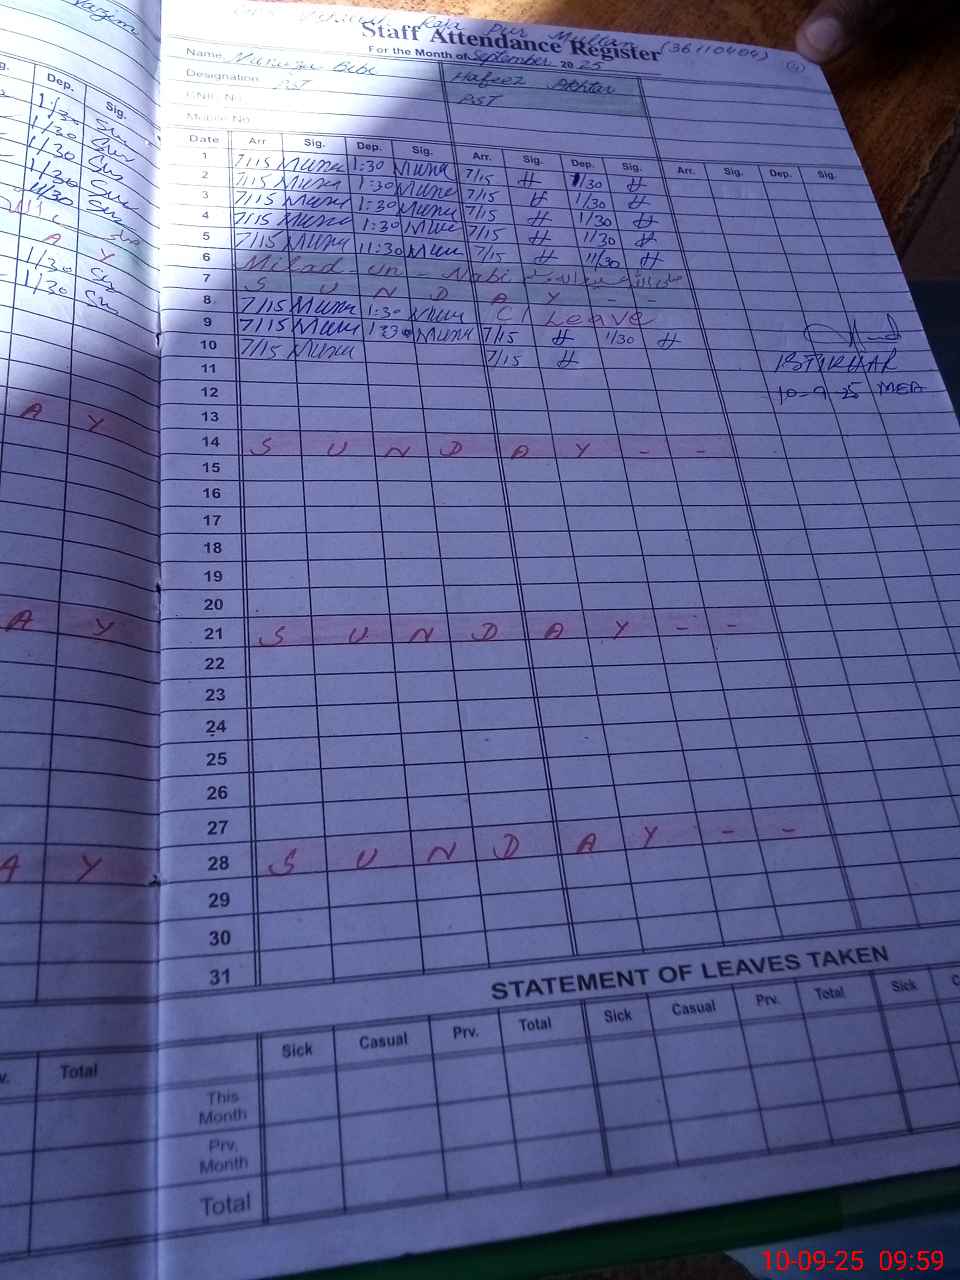 Pur Multan (36110404)
Staff Attendance Register
For the Month of September 2025
Name Munaza Bibi Hafeez Akhtar
Designation PST PST
CNIC No.
Mobile No.
Date Arr. Sig. Dep. Sig. Arr. Sig. Dep. Sig. Arr. Sig. Dep. Sig.
1 7/15 Muna 1:30 Muna 7/15 H 1/30 H
2 7/15 Muna 1:30 Muna 7/15 H 1/30 H
3 7/15 Muna 1:30 Muna 7/15 H 1/30 H
4 7/15 Muna 1:30 Muna 7/15 H 1/30 H
5 7/15 Muna 11:30 Muna 7/15 H 11/30 H
6 Milad - un - Nabi
7 S U N D A Y - -
8 7/15 Muna 1:30 Muna C/ Leave
9 7/15 Muna 1:30 Muna 7/15 H 1/30 H
10 7/15 Muna 7/15 H
IFTIKHAR
10-9-25 MEA
11
12
13
14 S U N D A Y - -
15
16
17
18
19
20
21 S U N D A Y - -
22
23
24
25
26
27
28 S U N D A Y - -
29
30
31
STATEMENT OF LEAVES TAKEN
Sick Casual Prv. Total Sick Casual Prv. Total Sick
This Month
Prv. Month
Total
Dep. Sig.
1:30
1/30
1/30
1/30
11/30
A Y
1/30
1/30
A Y
A Y
A Y
Total
10-09-25 09:59